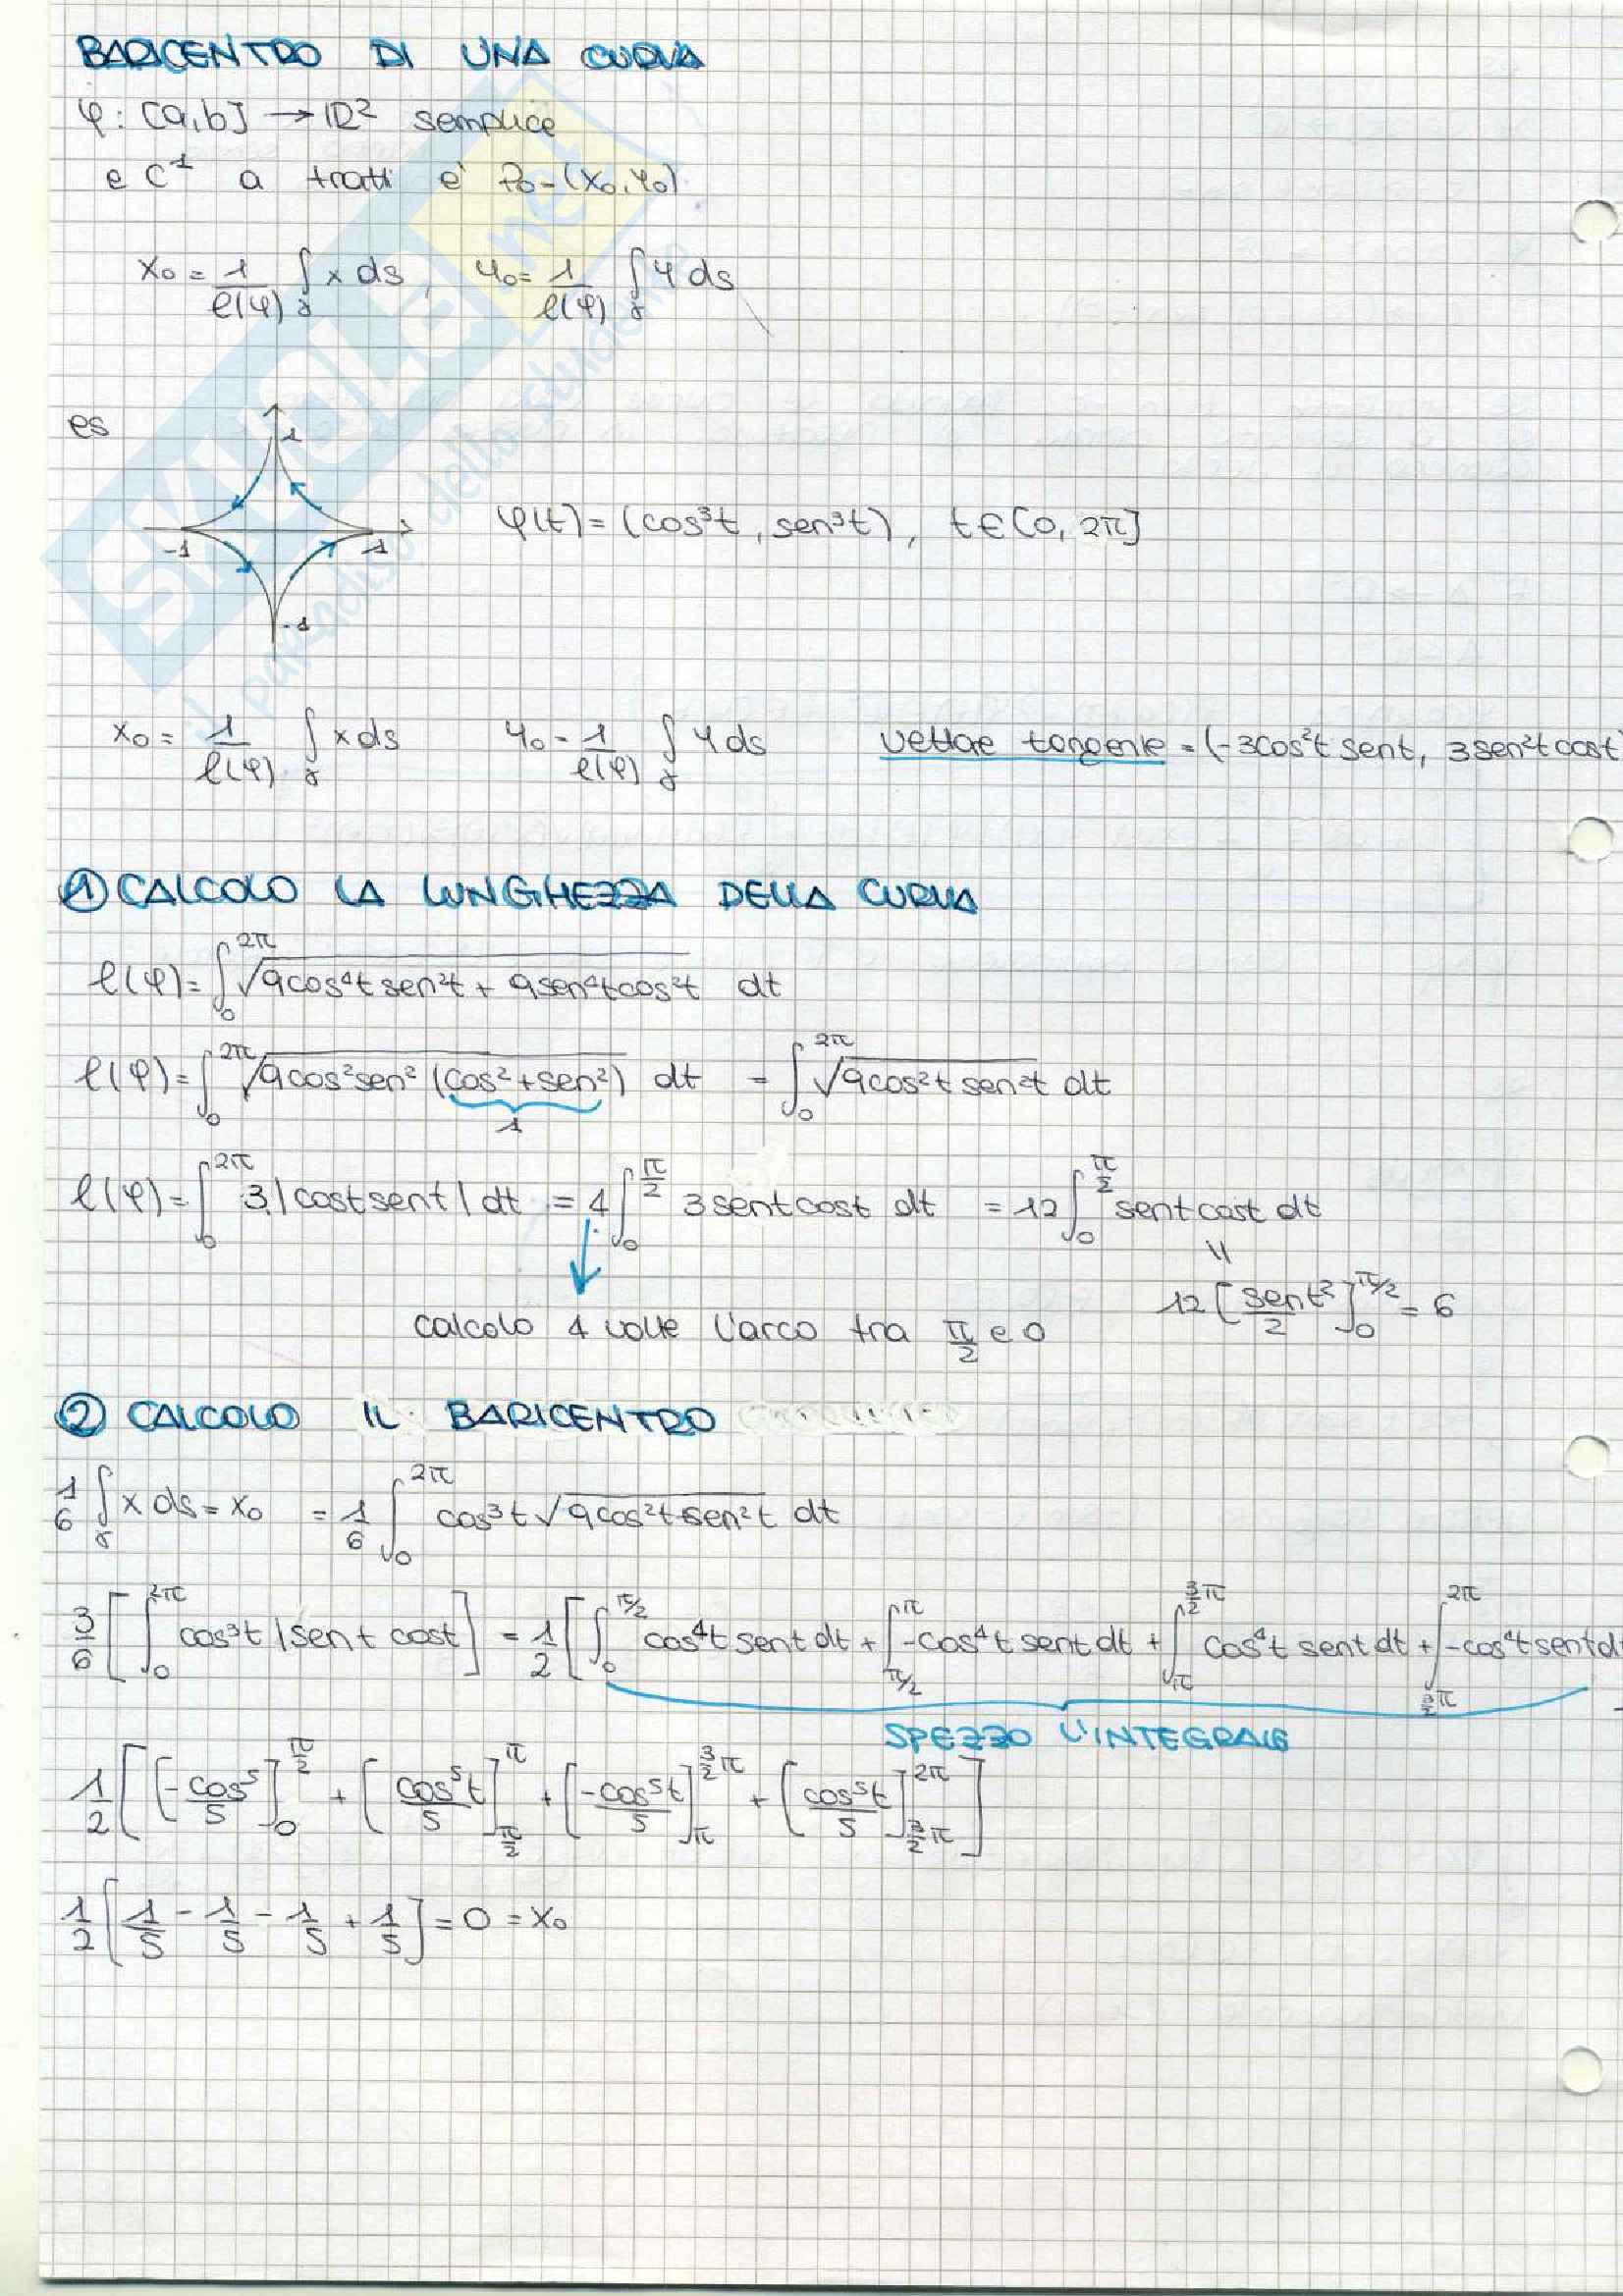 BARICENTRO DI UNA CURVA
φ: [a,b] → ℝ² semplice
e C¹ a tratti è P₀ = (x₀, y₀)
x₀ = 1/ℓ(φ) ∫_γ x ds, y₀ = 1/ℓ(φ) ∫_γ y ds
es
1
-1 1
-1
φ(t) = (cos³t, sen³t), t ∈ [0, 2π]
x₀ = 1/ℓ(φ) ∫_γ x ds y₀ = 1/ℓ(φ) ∫_γ y ds vettore tangente = (-3cos²t sent, 3sen²t cost)
① CALCOLO LA LUNGHEZZA DELLA CURVA
ℓ(φ) = ∫₀^2π √(9cos⁴t sen²t + 9sen⁴t cos²t) dt
ℓ(φ) = ∫₀^2π √(9cos²sen² (cos²+sen²)) dt = ∫₀^2π √(9cos²t sen²t) dt
1
ℓ(φ) = ∫₀^2π 3|cost sent| dt = 4 ∫₀^π/2 3sent cost dt = 12 ∫₀^π/2 sent cost dt
=
12 [sent²/2]₀^π/2 = 6
calcolo 4 volte l'arco tra π/2 e 0
② CALCOLO IL BARICENTRO
1/6 ∫_γ x ds = x₀ = 1/6 ∫₀^2π cos³t √(9cos²t sen²t) dt
3/6 [∫₀^2π cos³t |sent cost] = 1/2 [∫₀^π/2 cos⁴t sent dt + ∫_π/2^π -cos⁴t sent dt + ∫_π^3/2π cos⁴t sent dt + ∫_3/2π^2π -cos⁴t sent d
SPEZZO L'INTEGRALE
1/2 [[-cos⁵/5]₀^π/2 + [cos⁵t/5]_π/2^π + [-cos⁵t/5]_π^3/2π + [cos⁵t/5]_3/2π^2π]
1/2 [1/5 - 1/5 - 1/5 + 1/5] = 0 = x₀
SKUOLA.net
il paradiso dello studente